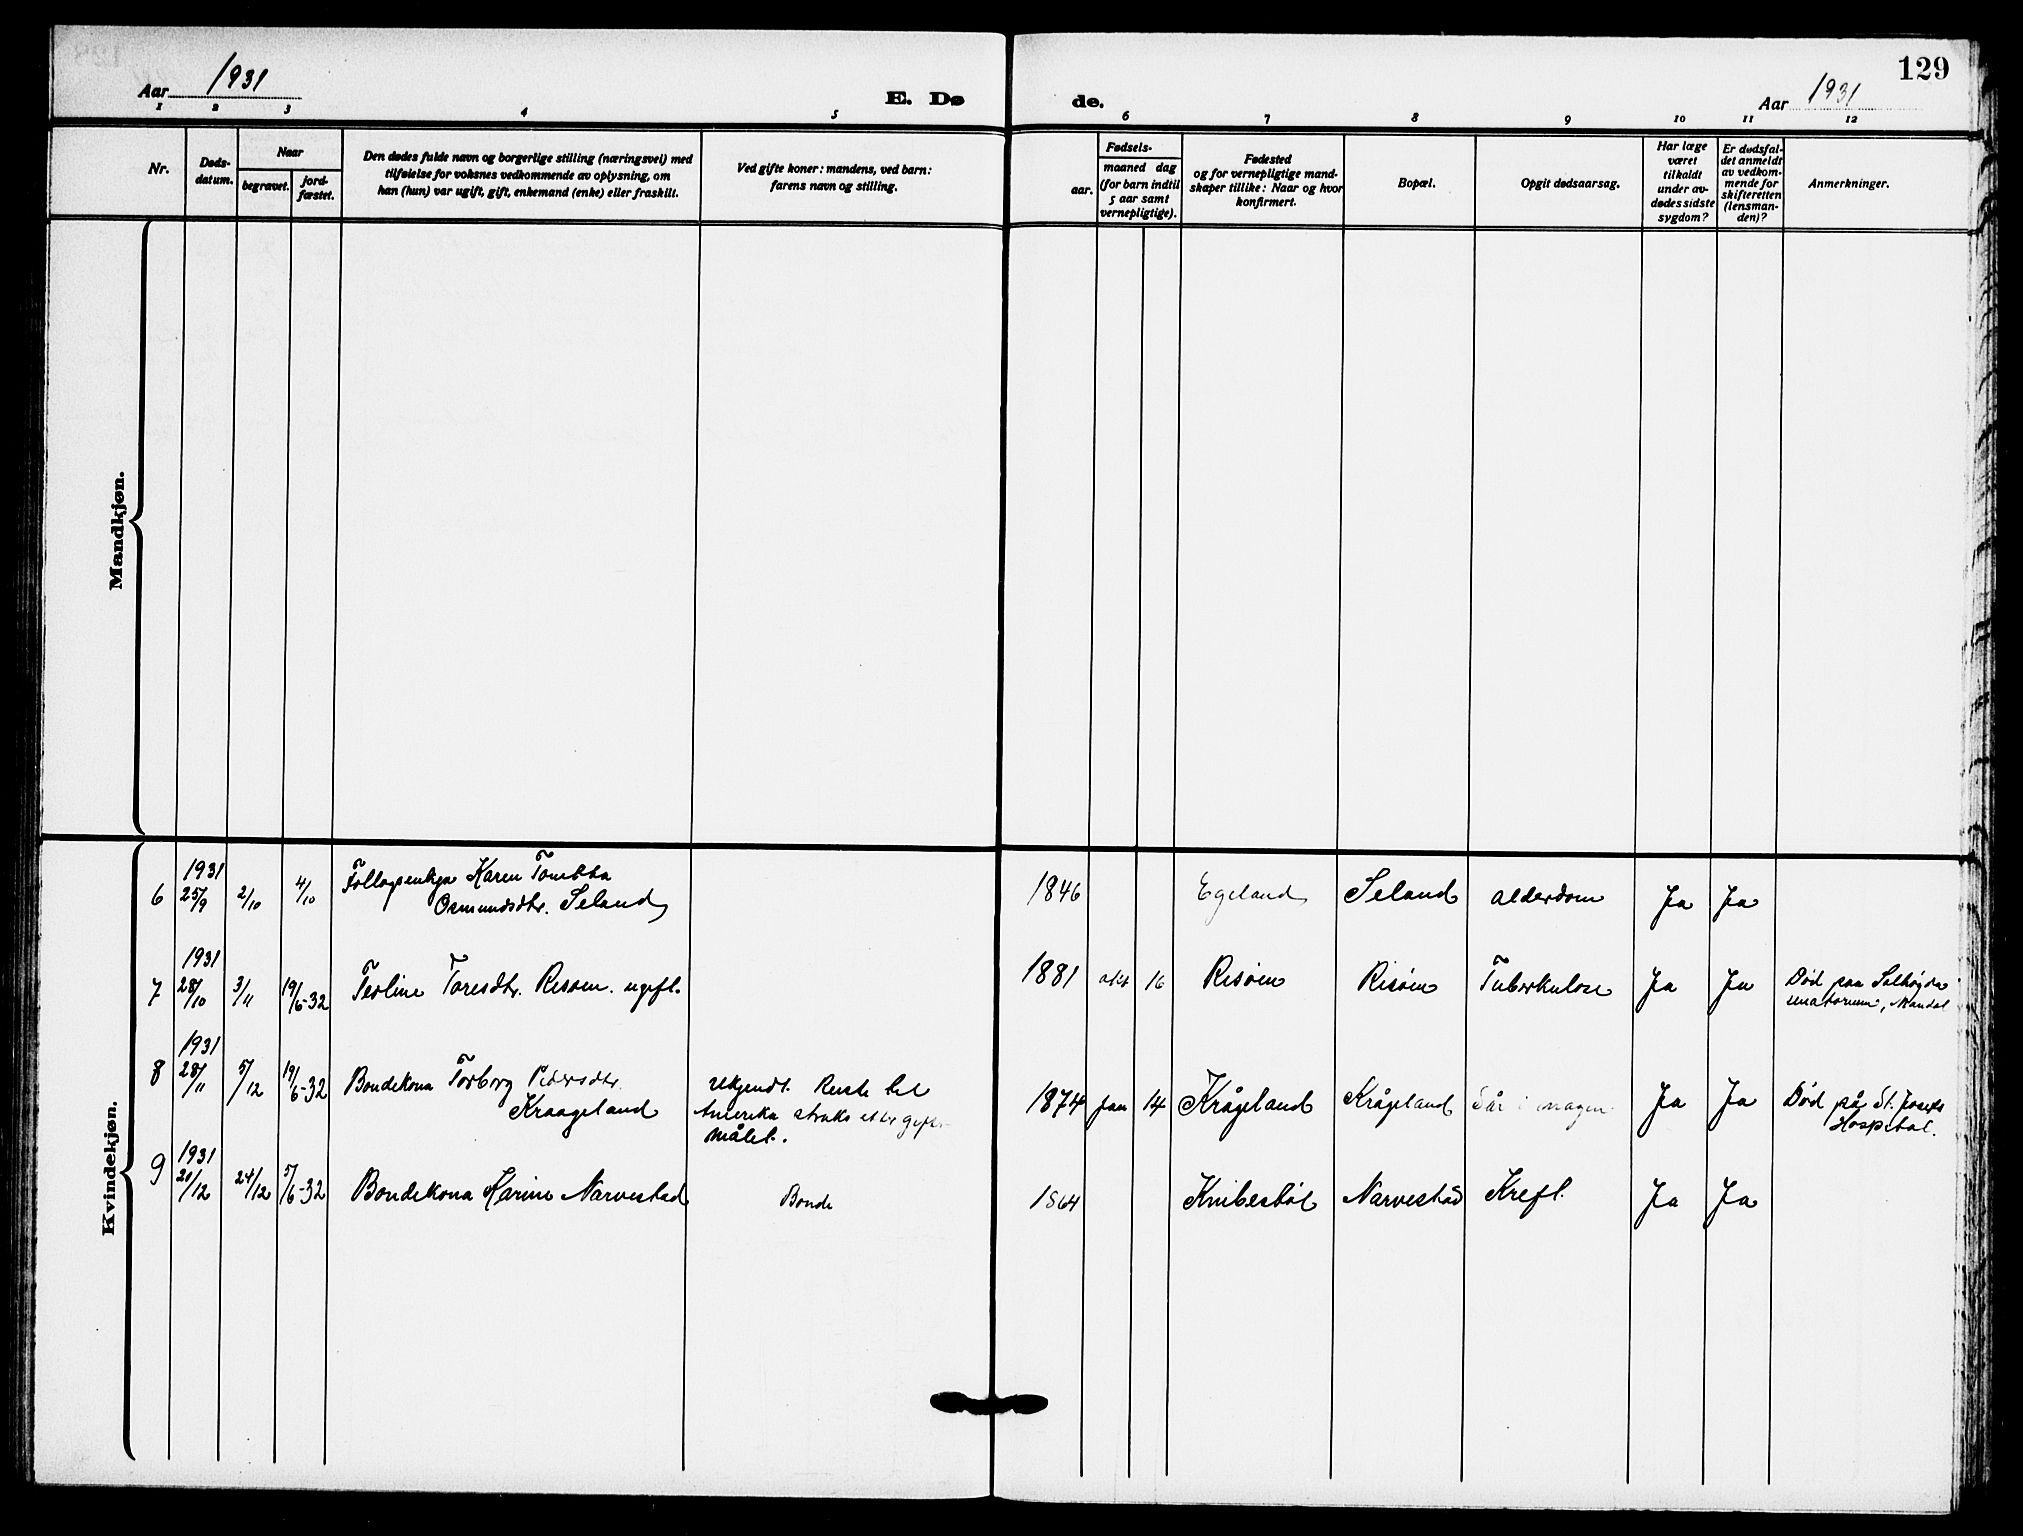 129
Aar 1931
E. Dø
de.
Aar 1931
1 2 3 4 5 6 7 8 9 10 11 12
Nr.
Døds-
datum.
Naar
begravet.
jord-
fæstet.
Den dødes fulde navn og borgerlige stilling (næringsvei) med
tilføielse for voksnes vedkommende av oplysning, om
han (hun) var ugift, gift, enkemand (enke) eller fraskilt.
Ved gifte koner: mandens, ved barn:
farens navn og stilling.
Fødsels-
aar.
maaned dag
(for barn indtil
5 aar samt
vernepligtige).
Fødested
og for vernepligtige mand-
skaper tillike: Naar og hvor
konfirmert.
Bopæl.
Opgit dødsaarsag.
Har læge
været
tilkaldt
under av-
dødes sidste
sygdom?
Er dødsfal-
det anmeldt
av vedkom-
mende for
skifteretten
(lensman-
den)?
Anmerkninger.
Mandkjøn.
Kvindekjøn.
1931
6 25/9 2/10 4/10 Karen
Osmundsdtr. Seland
1846 Egeland Seland alderdom Ja Ja
1931
7 28/10 3/11 19/6-32 Teoline Toresdtr. Risøen. ugift.
1881 okt 16 Risøen Risøen Tuberkulose Ja Ja Død paa
Mandal
1931
8 28/11 5/12 19/6-32 Bondekona Torborg Pedersdtr.
Kraageland
ukjendt. Reiste til
Amerika straks etter gifter-
målet.
1874 Jan 14 Krågeland Krågeland Sår i magen Ja Ja Død på St. Josefs
Hospital.
1931
9 20/12 24/12 5/6-32 Bondekona Karine Narvestad
Bonde
1864 Knibestøl Narvestad Kreft. Ja Ja